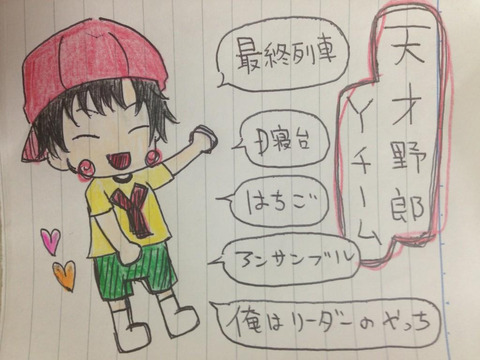 天才野郎
Yチーム
最終列車
B寝台
はちご
アンサンブル
俺はリーダーのやっち
Y